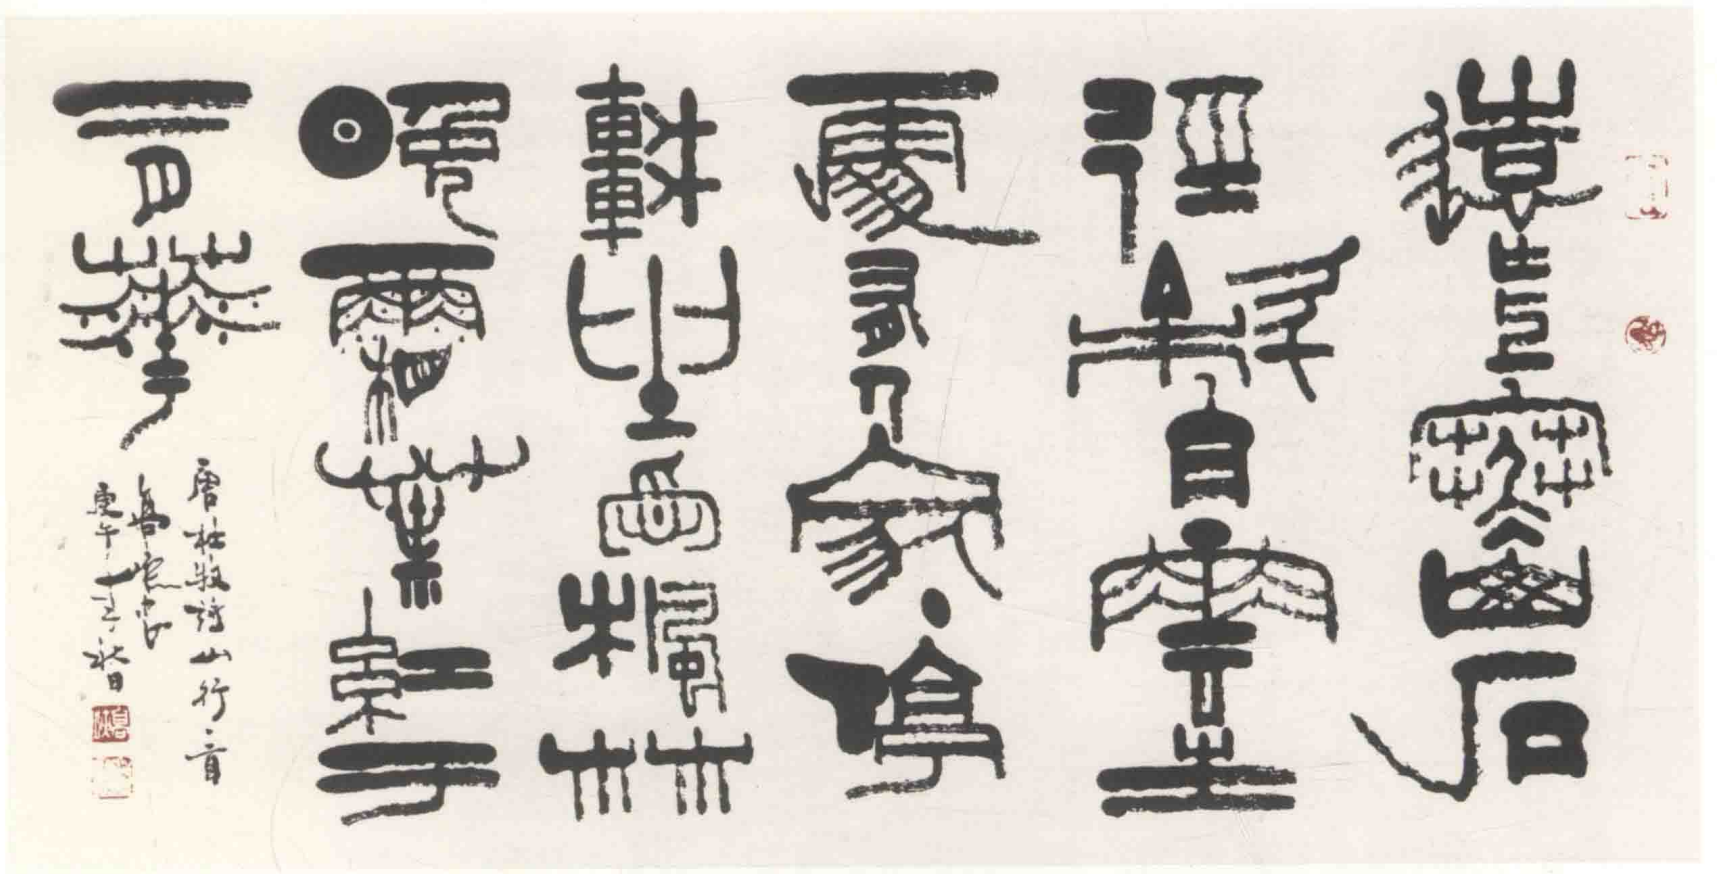 遠上寒山石
徑斜白雲生
處有人家停
車坐愛楓林
晚霜葉紅于
二月華
唐杜牧詩山行一首
庚午秋日